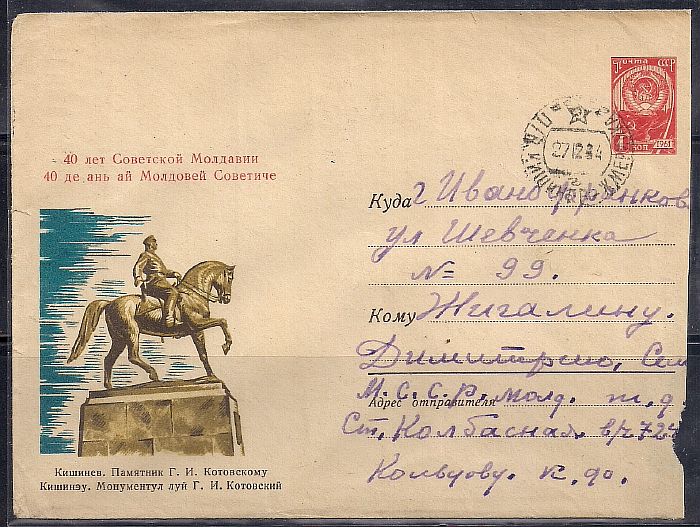 ПОЧТА СССР
4 КОП. 1961
27 12 64
40 лет Советской Молдавии
40 де ань ай Молдовей Советиче
Куда г Иванофранков
ул Шевченка
№ 99.
Кому Жигалину.
Димитрию, Сем
М. С. С. Р, молд. ж. д.
Адрес отправителя
Ст. Колбасная. в/ч 724
Кольцову. К. до.
Кишинев. Памятник Г. И. Котовскому
Кишинэу. Монументул луй Г. И. Котовский